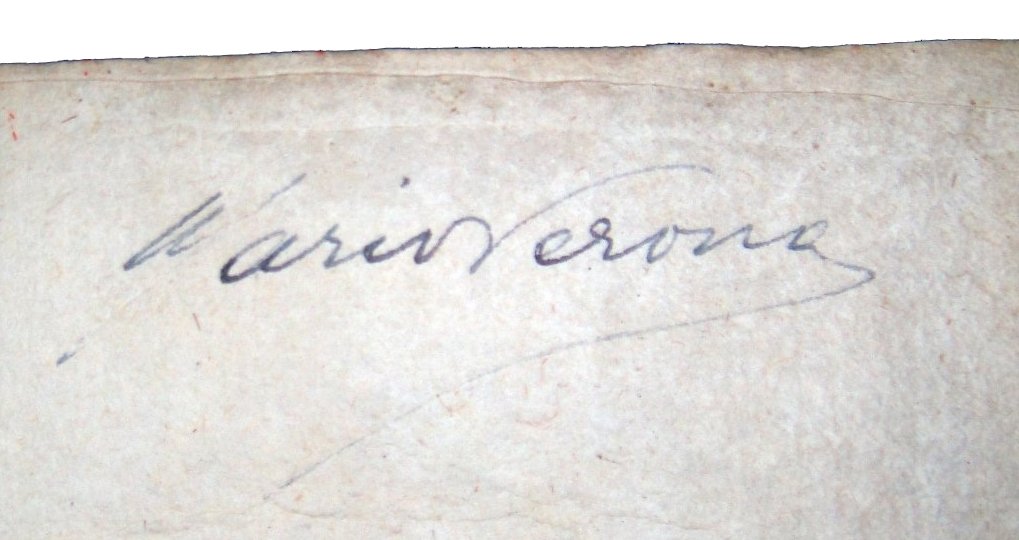 Mario Verona